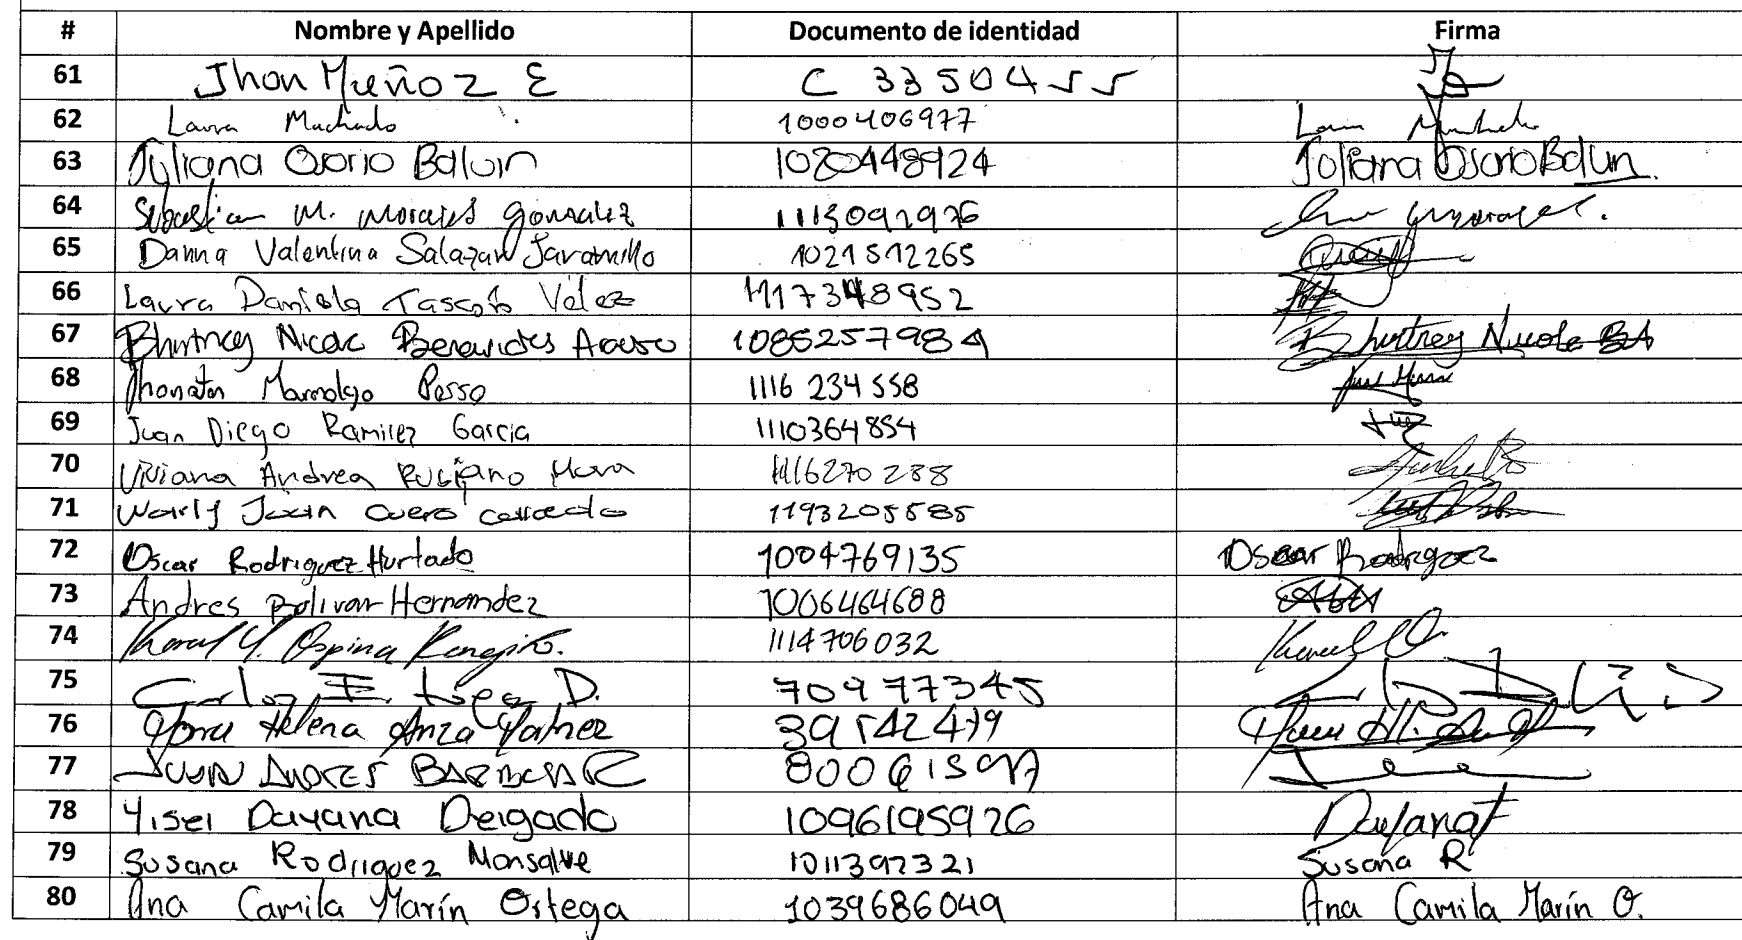 # Nombre y Apellido Documento de identidad Firma
61 Jhon Muñoz E C 3350455
62 Laura Machado 1000406977 Laura Machado
63 Juliana Osorio Balvin 1020448924 Juliana Osorio Balvin.
64 Sebastian M. Morales González 1113091976
65 Danna Valentina Salazar Jaramillo 1021512265
66 Laura Daniela Tascón Vélez 948952
67 Bhirtney Nicole Benavides 1085257984 Bhirtney Nicole BA
68 Jhonatan Marmolejo Posso 1116 234 558
69 Juan Diego Ramirez Garcia 1110364854
70 Viviana Andrea Mora 1116270288
71 Cuero 1193205585
72 Oscar Rodriguez Hurtado 1004769135 Oscar Rodriguez
73 Andres Bolivar Hernandez 1006464688
74 Ospina 1114706032
75 Carlos E. López D. 70977345
76 Helena Ariza 39542479
77 JUAN ANDRES BARBOSA R
78 Yisel Dayana Delgado 1096195926 Dayana
79 Susana Rodriguez Monsalve 1011392321 Susana R
80 Ana Camila Marín Ortega 1039686049 Ana Camila Marín O.